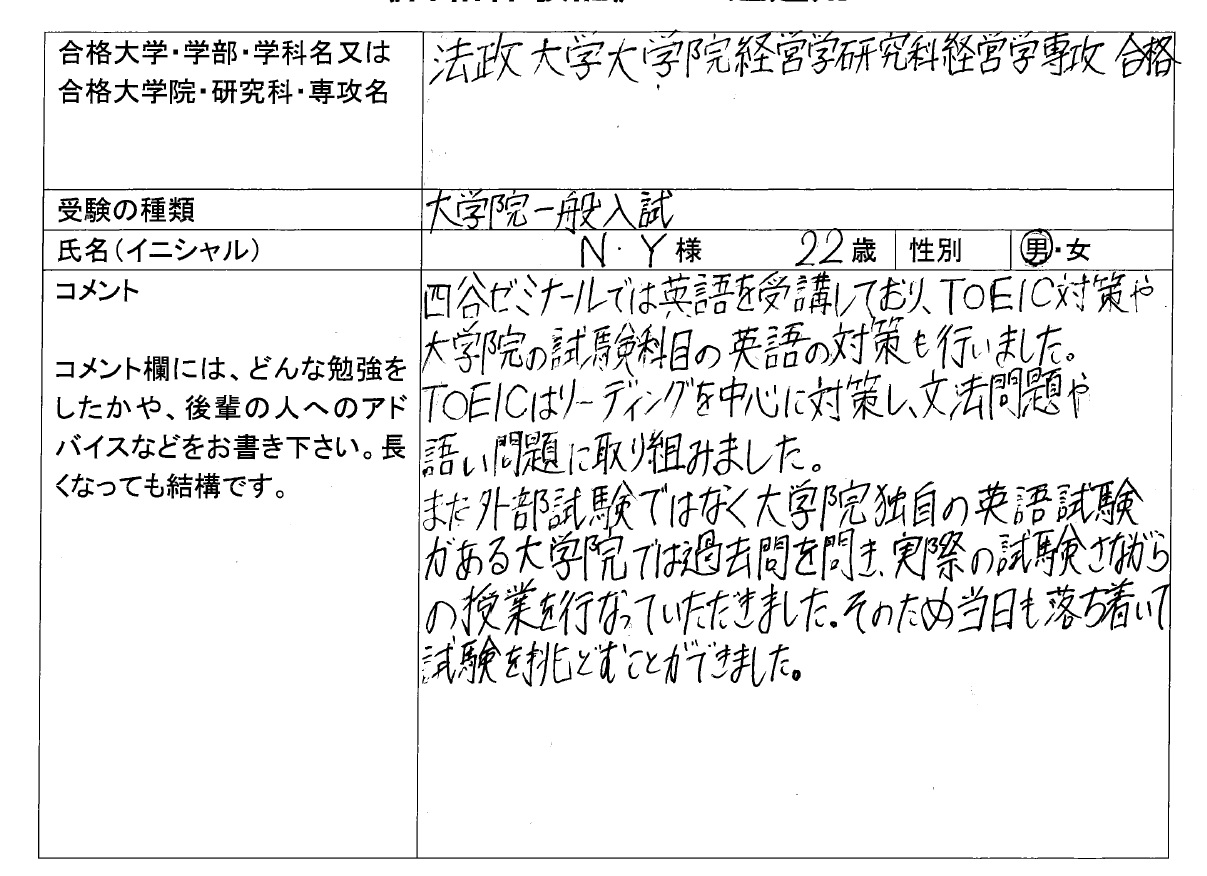 合格大学・学部・学科名又は
合格大学院・研究科・専攻名
法政大学大学院経営学研究科経営学専攻 合格
受験の種類
大学院一般入試
氏名(イニシャル)
N・Y様 22歳 性別 男・女
コメント
コメント欄には、どんな勉強を
したかや、後輩の人へのアド
バイスなどをお書き下さい。長
くなっても結構です。
四谷ゼミナールでは英語を受講しており、TOEIC対策や
大学院の試験科目の英語の対策も行いました。
TOEICはリーディングを中心に対策し、文法問題や
語い問題に取り組みました。
また外部試験ではなく大学院独自の英語試験
がある大学院では過去問を問き、実際の試験さながら
の授業を行なっていただきました。そのため当日も落ち着いて
試験を挑どむことができました。